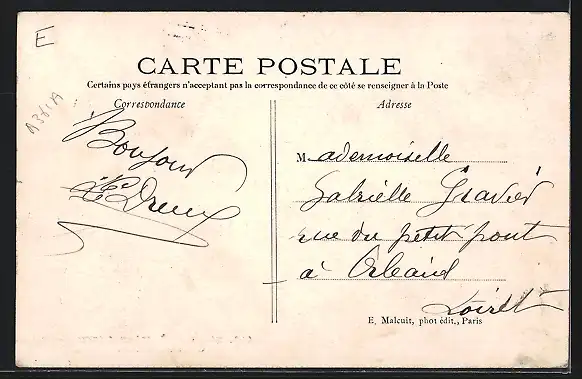 E
CARTE POSTALE
Certains pays étrangers n'acceptant pas la correspondance de ce côté se renseigner à la Poste
Correspondance
Adresse
Bonjour
Mademoiselle
Gabrielle Gravier
rue du petit pont
à Orléans
Loiret
E. Malcuit, phot édit., Paris